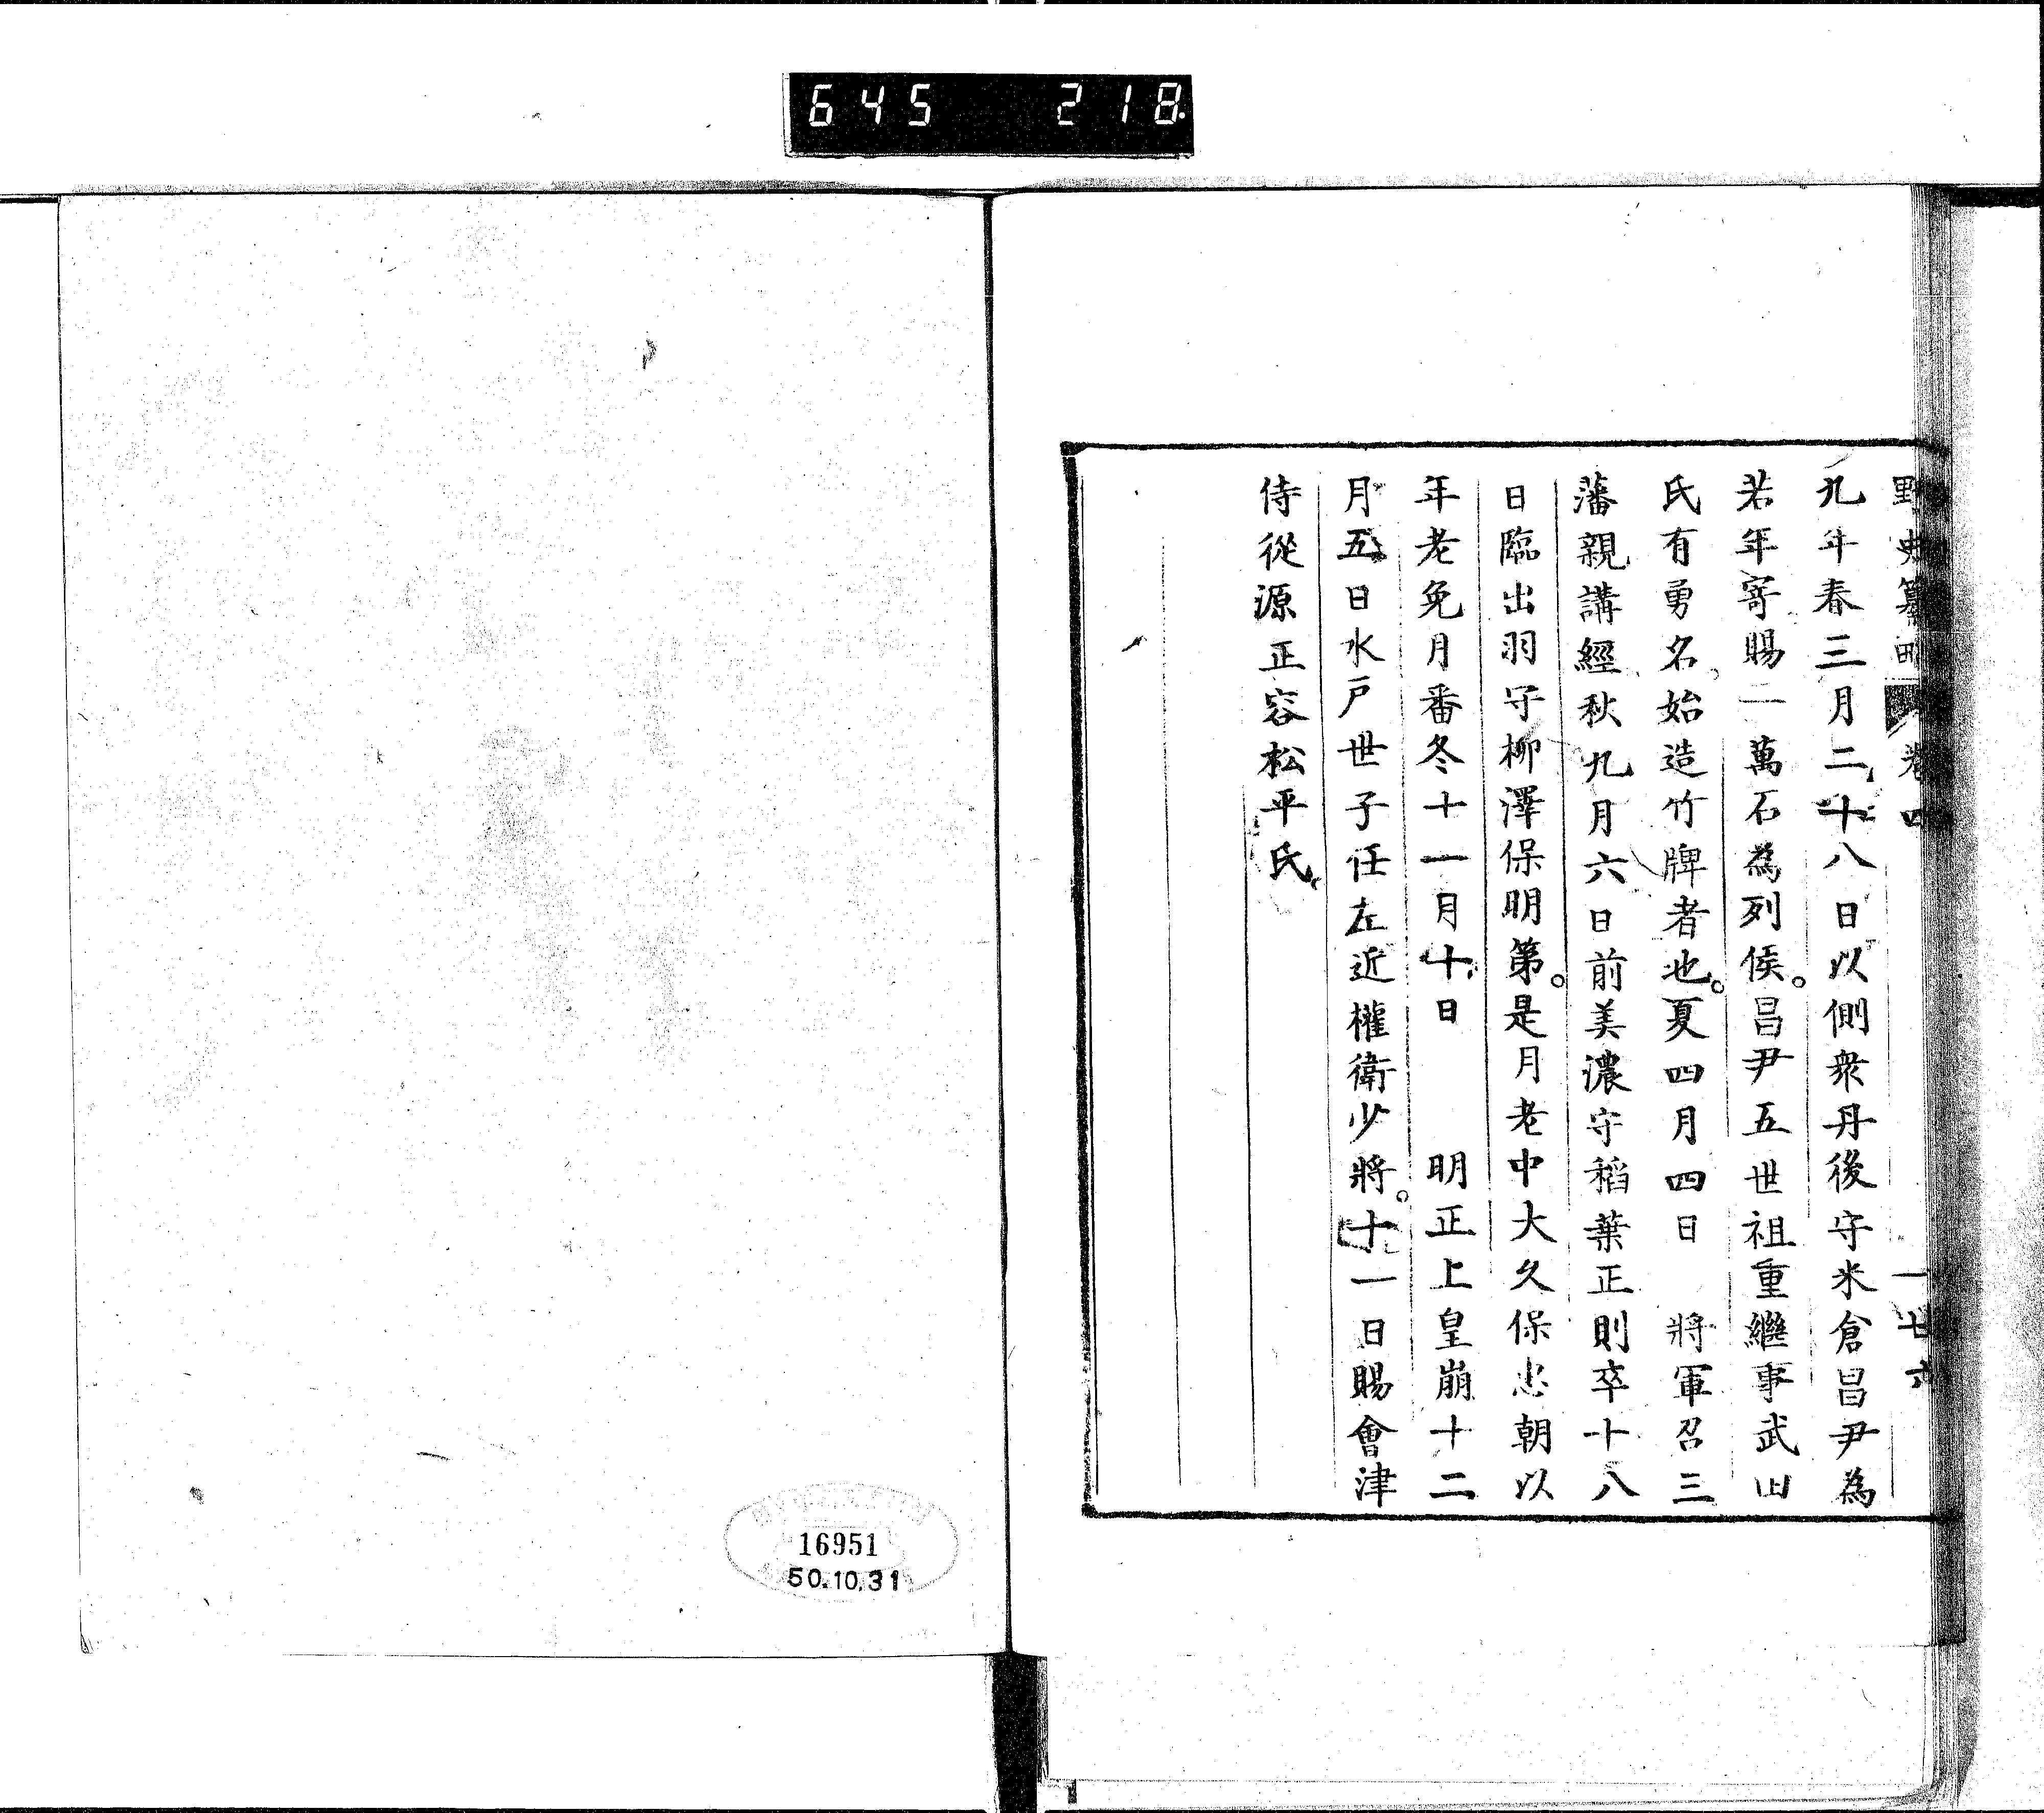 645 218
野史纂略 卷四 一七六
九年春三月二十八日以側衆丹後守米倉昌尹為
若年寄賜一萬石為列侯。昌尹五世祖重繼事武田
氏有勇名。始造竹牌者也。夏四月四日 將軍召三
藩親講經秋九月六日前美濃守稻葉正則卒十八
日臨出羽守柳澤保明第。是月老中大久保忠朝以
年老免月番冬十一月十日 明正上皇崩十二
月五日水戶世子任左近權衛少將。十一日賜會津
侍從源正容松平氏
16951
50.10.31